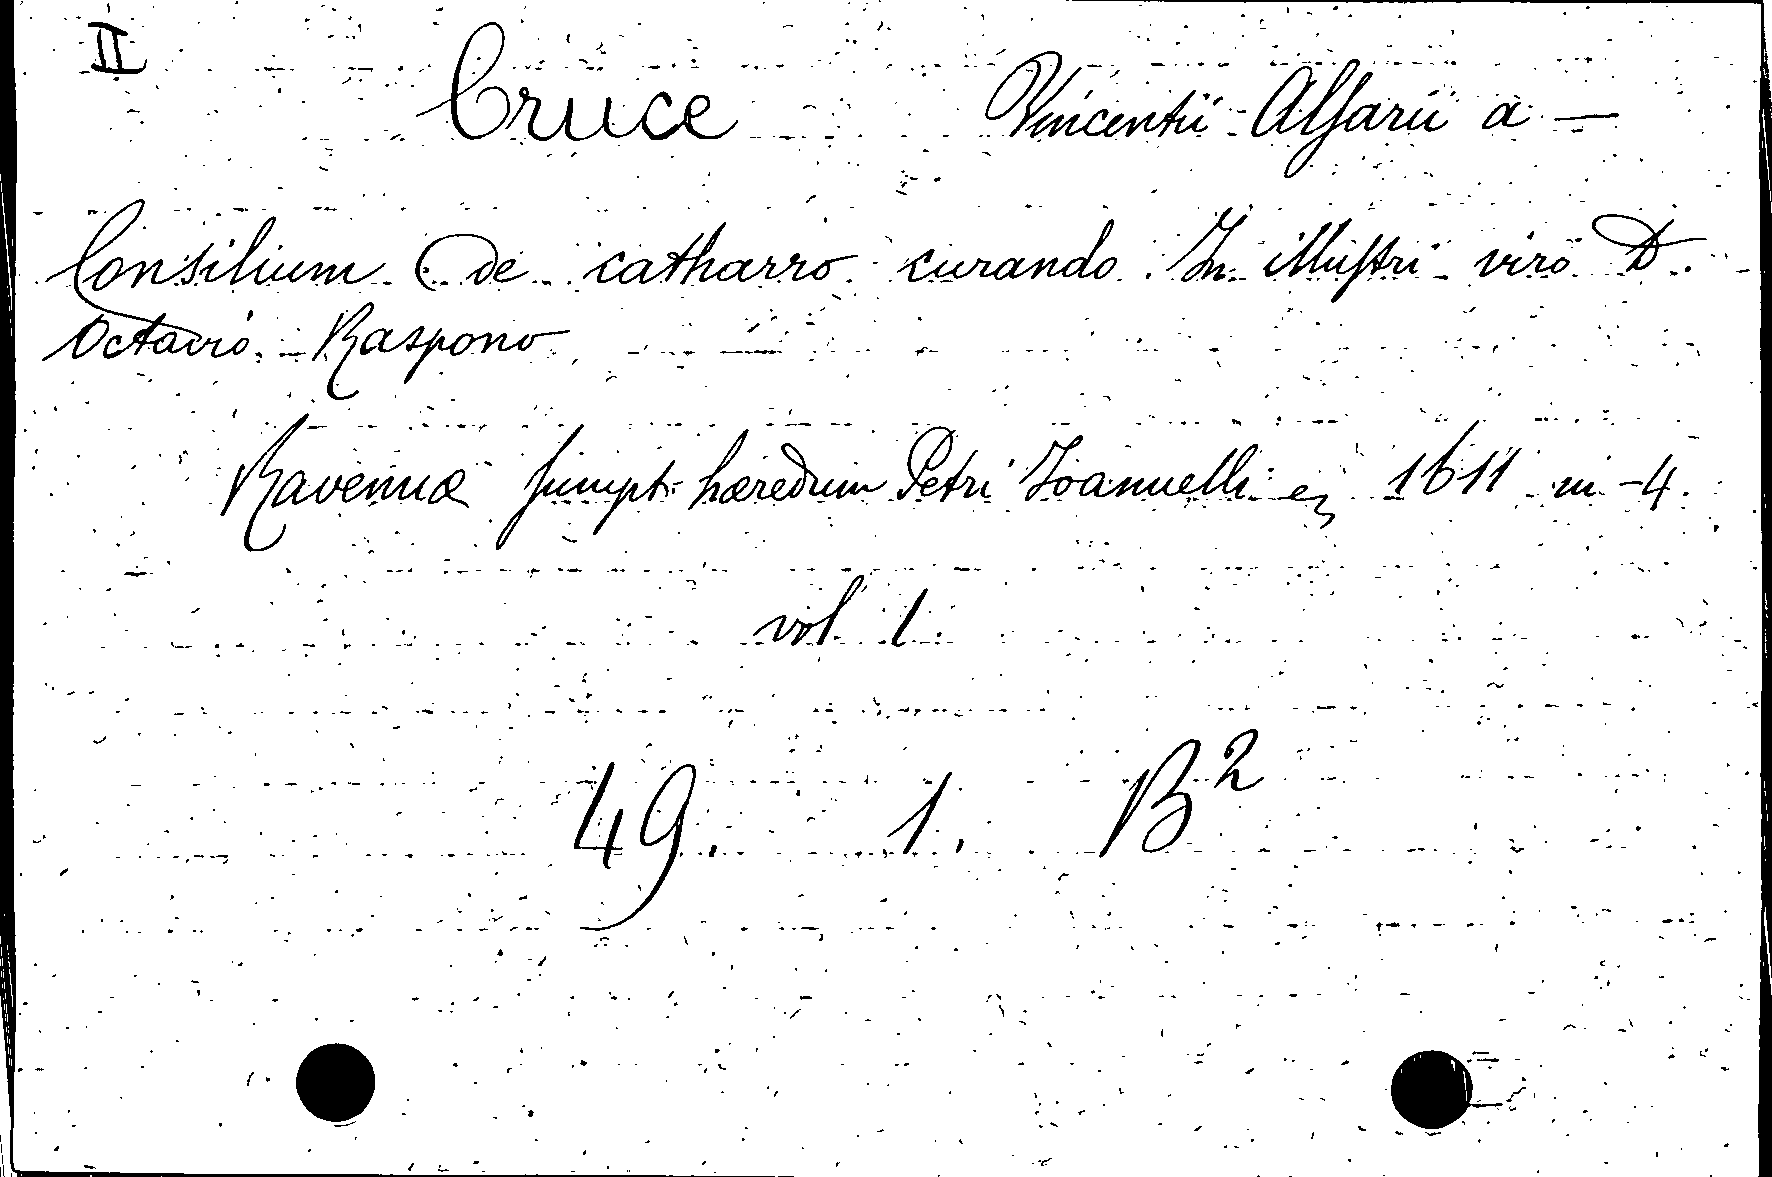 II
Cruce Vincentii Alsarii a —
Consilium de catharro curando In illustri viro D.
Octavio Raspono
Ravennæ sumpt. hæredum Petri Ioannelli 1611 in-4.
vol 1
49. 1. B²